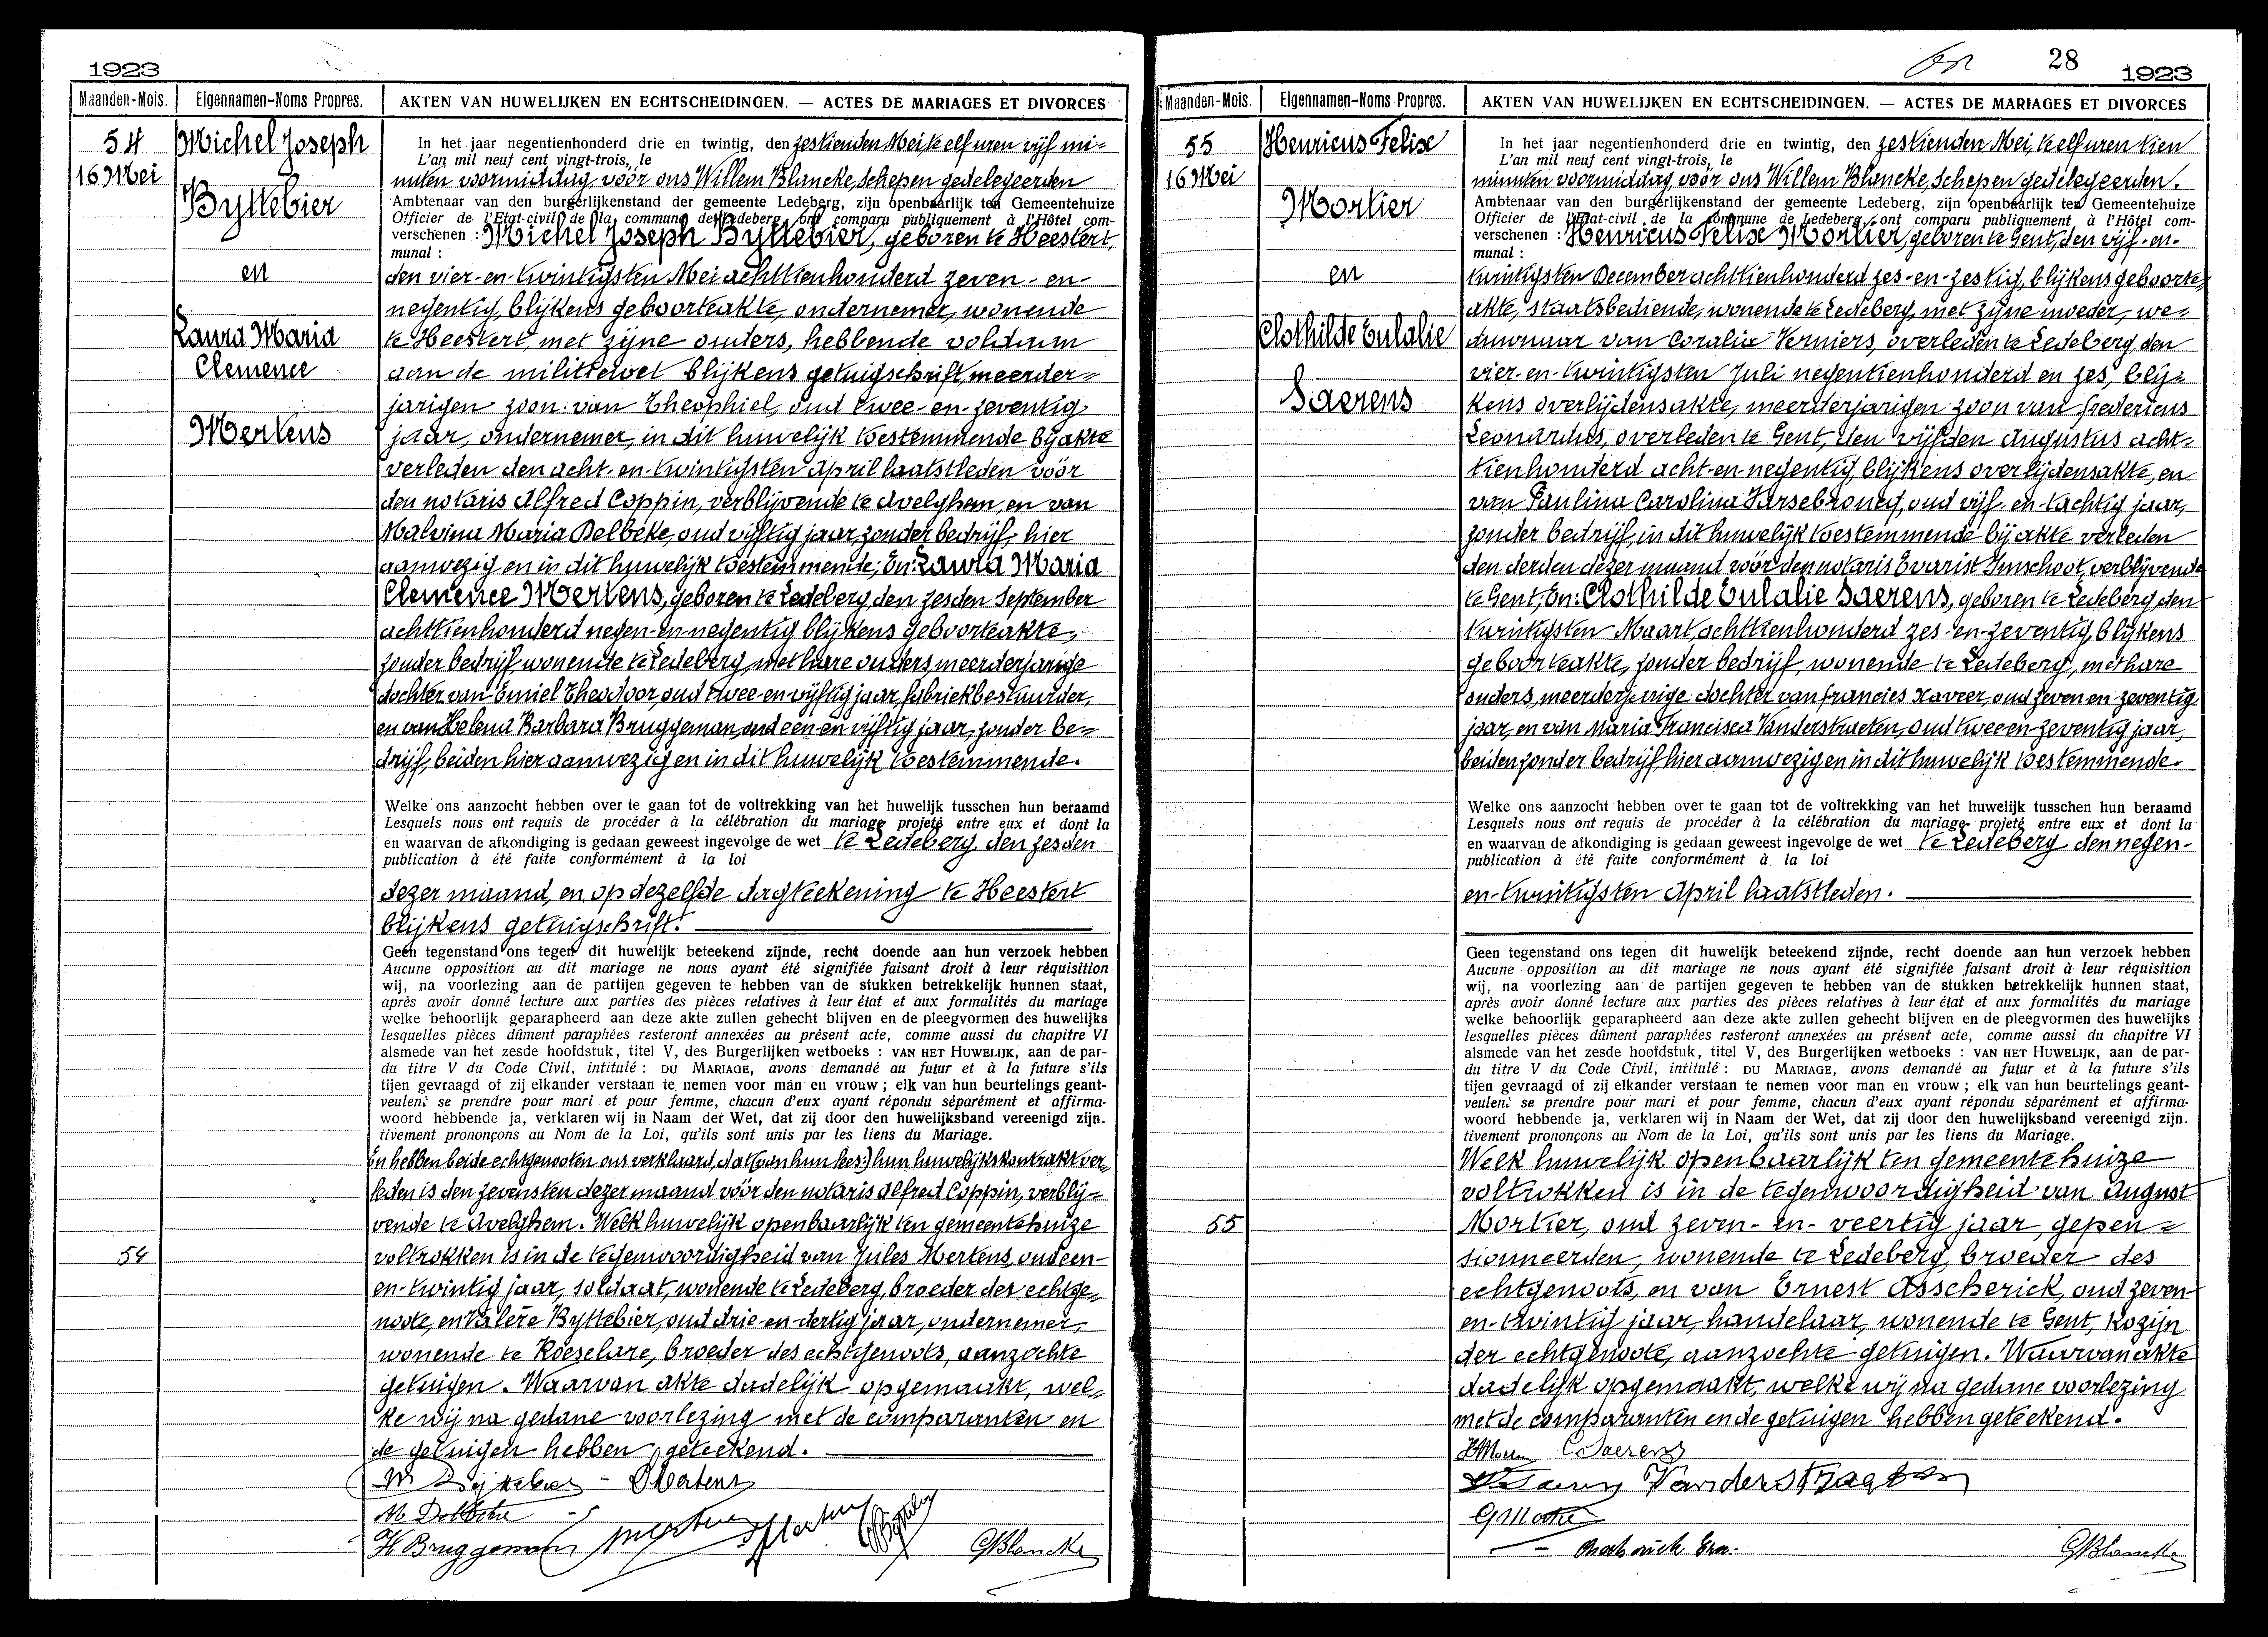 1923
Maanden-Mois. Eigennamen-Noms Propres. AKTEN VAN HUWELIJKEN EN ECHTSCHEIDINGEN. — ACTES DE MARIAGES ET DIVORCES
54
16 Mei
Michel Joseph
Byttebier
en
Laura Maria
Clemence
Mertens
In het jaar negentienhonderd drie en twintig, den zestienden Mei, te elf uren vijf mi=
L'an mil neuf cent vingt-trois, le
nuten voormiddag, vóór ons Willem Blancke, Schepen gedelegeerden
Ambtenaar van den burgerlijkenstand der gemeente Ledeberg, zijn openbaarlijk ten Gemeentehuize
Officier de l'Etat-civil de la commune de Ledeberg, ont comparu publiquement à l'Hôtel com-
verschenen : Michel Joseph Byttebier, geboren te Heestert,
munal :
den vier-en-twintigsten Mei achttienhonderd zeven-en-
negentig, blijkens geboorteakte, ondernemer, wonende
te Heestert, met zijne ouders, hebbende voldaan
aan de militiewet blijkens getuigschrift, meerder=
jarigen zoon van Theophiel, oud twee-en-zeventig
jaar, ondernemer, in dit huwelijk toestemmende bij akte
verleden den acht-en-twintigsten April laatstleden vóór
den notaris Alfred Coppin, verblijvende te Avelghem, en van
Malvina Maria Delbeke, oud vijftig jaar, zonder bedrijf, hier
aanwezig en in dit huwelijk toestemmende; En: Laura Maria
Clemence Mertens, geboren te Ledeberg, den zesden September
achttienhonderd negen-en-negentig blijkens geboorteakte,
zonder bedrijf, wonende te Ledeberg, met hare ouders, meerderjarige
dochter van Emiel Theodoor, oud twee-en-vijftig jaar, fabriekbestuurder,
en van Helena Barbara Bruggeman, oud een-en-vijftig jaar, zonder be=
drijf, beiden hier aanwezig en in dit huwelijk toestemmende.
Welke ons aanzocht hebben over te gaan tot de voltrekking van het huwelijk tusschen hun beraamd
Lesquels nous ont requis de procéder à la célébration du mariage projeté entre eux et dont la
en waarvan de afkondiging is gedaan geweest ingevolge de wet te Ledeberg, den zesden
publication à été faite conformément à la loi
dezer maand, en op dezelfde dagteekening te Heestert
blijkens getuigschrift.
Geen tegenstand ons tegen dit huwelijk beteekend zijnde, recht doende aan hun verzoek hebben
Aucune opposition au dit mariage ne nous ayant été signifiée faisant droit à leur réquisition
wij, na voorlezing aan de partijen gegeven te hebben van de stukken betrekkelijk hunnen staat,
après avoir donné lecture aux parties des pièces relatives à leur état et aux formalités du mariage
welke behoorlijk geparapheerd aan deze akte zullen gehecht blijven en de pleegvormen des huwelijks
lesquelles pièces dûment paraphées resteront annexées au présent acte, comme aussi du chapitre VI
alsmede van het zesde hoofdstuk, titel V, des Burgerlijken wetboeks : VAN HET HUWELIJK, aan de par-
du titre V du Code Civil, intitulé : DU MARIAGE, avons demandé au futur et à la future s'ils
tijen gevraagd of zij elkander verstaan te nemen voor man en vrouw ; elk van hun beurtelings geant-
veulent se prendre pour mari et pour femme, chacun d'eux ayant répondu séparément et affirma-
woord hebbende ja, verklaren wij in Naam der Wet, dat zij door den huwelijksband vereenigd zijn.
tivement prononçons au Nom de la Loi, qu'ils sont unis par les liens du Mariage.
En hebben beide echtgenooten ons verklaard, dat (van hun lees:) hun huwelijkskontrakt ver=
leden is den zevensten dezer maand vóór den notaris Alfred Coppin, verblij=
vende te Avelghem. Welk huwelijk openbaarlijk ten gemeentehuize
54
voltrokken is in de tegenwoordigheid van Jules Mertens, oud een-
en-twintig jaar, soldaat, wonende te Ledeberg, broeder der echtge=
noote, en Valère Byttebier, oud drie-en-dertig jaar, ondernemer,
wonende te Roeselare, broeder des echtgenoots, aanzochte
getuigen. Waarvan akte dadelijk opgemaakt, wel=
ke wij na gedane voorlezing met de comparanten en
de getuigen hebben geteekend.
M Byttebier - LMertens
M. Delbeke
H Bruggeman Mertens JMertens
GBlancke
28
1923
Maanden-Mois. Eigennamen-Noms Propres. AKTEN VAN HUWELIJKEN EN ECHTSCHEIDINGEN. — ACTES DE MARIAGES ET DIVORCES
55
16 Mei
Henricus Felix
Mortier
en
Clothilde Eulalie
Saerens
In het jaar negentienhonderd drie en twintig, den zestienden Mei, te elf uren tien
L'an mil neuf cent vingt-trois, le
minuten voormiddag, vóór ons Willem Blancke, Schepen gedelegeerden.
Ambtenaar van den burgerlijkenstand der gemeente Ledeberg, zijn openbaarlijk ten Gemeentehuize
Officier de l'Etat-civil de la commune de Ledeberg, ont comparu publiquement à l'Hôtel com-
verschenen : Henricus Felix Mortier, geboren te Gent, den vijf-en-
munal :
twintigsten December achttienhonderd zes-en-zestig, blijkens geboorte=
akte, staatsbediende, wonende te Ledeberg, met zijne moeder, we=
duwnaar van Coralie Verniers, overleden te Ledeberg, den
vier-en-twintigsten Juli negentienhonderd en zes, blij=
kens overlijdensakte, meerderjarigen zoon van Fredericus
Leonardus, overleden te Gent, den vijfden Augustus acht=
tienhonderd acht-en-negentig, blijkens overlijdensakte, en
van Paulina Carolina, oud vijf-en-tachtig jaar,
zonder bedrijf, in dit huwelijk toestemmende bij akte verleden
den derden dezer maand vóór den notaris Evarist Imschoot, verblijvende
te Gent; En: Clothilde Eulalie Saerens, geboren te Ledeberg, den
twintigsten Maart, achttienhonderd zes-en-zeventig, blijkens
geboorteakte, zonder bedrijf, wonende te Ledeberg, met hare
ouders, meerderjarige dochter van Francies Xaveer, oud zeven en zeventig
jaar, en van Maria Francisca Vanderstraeten, oud twee en zeventig jaar,
beiden zonder bedrijf, hier aanwezig en in dit huwelijk toestemmende.
Welke ons aanzocht hebben over te gaan tot de voltrekking van het huwelijk tusschen hun beraamd
Lesquels nous ont requis de procéder à la célébration du mariage projeté entre eux et dont la
en waarvan de afkondiging is gedaan geweest ingevolge de wet te Ledeberg den negen-
publication à été faite conformément à la loi
en-twintigsten April laatstleden.
Geen tegenstand ons tegen dit huwelijk beteekend zijnde, recht doende aan hun verzoek hebben
Aucune opposition au dit mariage ne nous ayant été signifiée faisant droit à leur réquisition
wij, na voorlezing aan de partijen gegeven te hebben van de stukken betrekkelijk hunnen staat,
après avoir donné lecture aux parties des pièces relatives à leur état et aux formalités du mariage
welke behoorlijk geparapheerd aan deze akte zullen gehecht blijven en de pleegvormen des huwelijks
lesquelles pièces dûment paraphées resteront annexées au présent acte, comme aussi du chapitre VI
alsmede van het zesde hoofdstuk, titel V, des Burgerlijken wetboeks : VAN HET HUWELIJK, aan de par-
du titre V du Code Civil, intitulé : DU MARIAGE, avons demandé au futur et à la future s'ils
tijen gevraagd of zij elkander verstaan te nemen voor man en vrouw ; elk van hun beurtelings geant-
veulent se prendre pour mari et pour femme, chacun d'eux ayant répondu séparément et affirma-
woord hebbende ja, verklaren wij in Naam der Wet, dat zij door den huwelijksband vereenigd zijn.
tivement prononçons au Nom de la Loi, qu'ils sont unis par les liens du Mariage.
Welk huwelijk openbaarlijk ten gemeentehuize
voltrokken is in de tegenwoordigheid van August
55
Mortier, oud zeven-en-veertig jaar, gepen=
sionneerden, wonende te Ledeberg, broeder des
echtgenoots, en van Ernest Asscherick, oud zeven-
en-twintig jaar, handelaar, wonende te Gent, kozijn
der echtgenoote, aanzochte getuigen. Waarvan akte
dadelijk opgemaakt, welke wij na gedane voorlezing
met de comparanten en de getuigen hebben geteekend.
CSaerens
Vanderstraeten
GBlancke